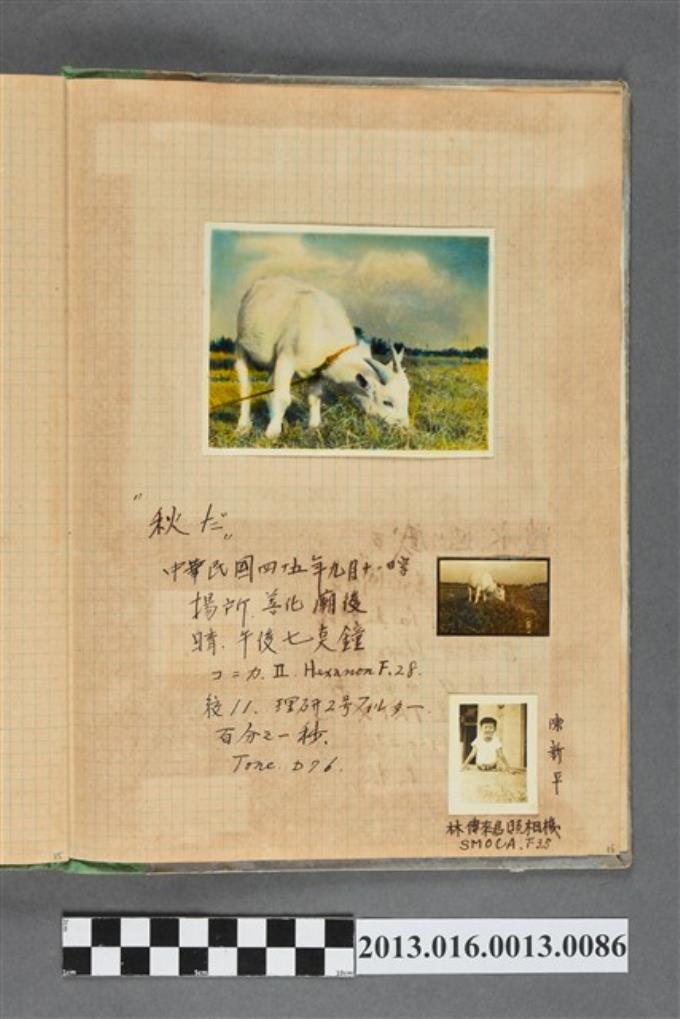 "秋だ"
中華民國四五年九月十一日
場所 善化廟後
晴 午後七莫鐘
コニカ II. Hexanon F.28.
絞11、理研2号フィルター
百分之一秒、
Tone. D76.
陳新平
林偉 照相機
SMOCA. F3.5
15
15
1cm
5cm
10cm
2013.016.0013.0086